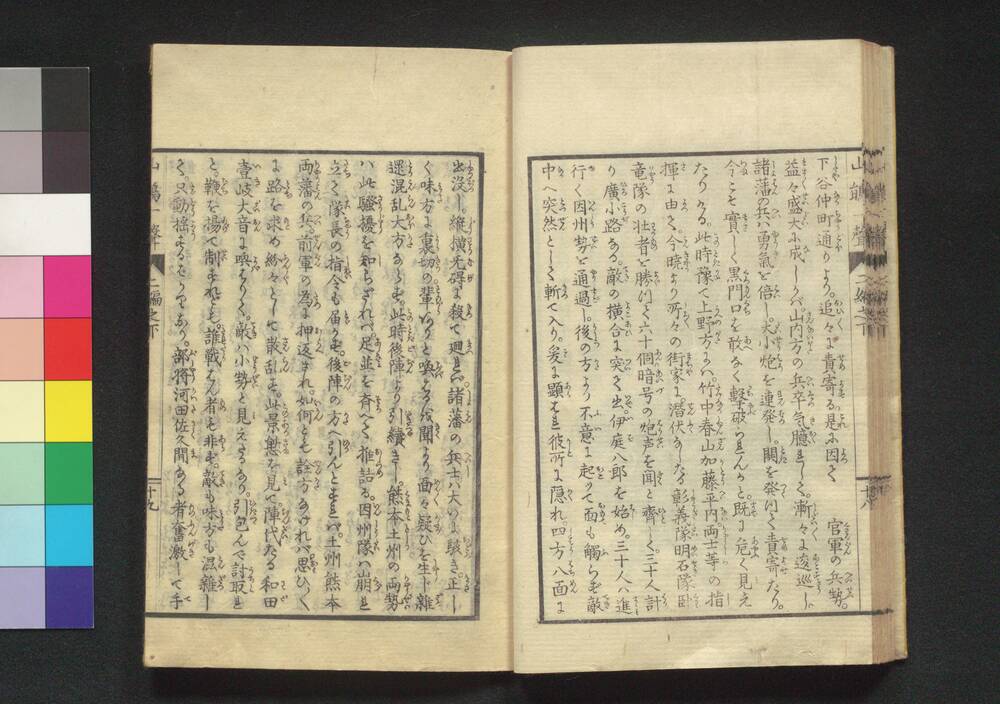 下谷仲町通りより。追々に責寄る。是に因て 官軍の兵勢。
益々盛大に成しかバ山内方の兵卒気臆して。漸々に逡巡し。
諸藩の兵ハ勇氣を倍し。大小炮を連発し。鬨を発つて責寄たり。
今こそ實に黒門口を敢なく撃破られんかと。既に危く見え
たりける。此時豫て上野方なる。竹中春山加藤平内両士等の指
揮に由て。今暁より所々の街家に潜伏したる 彰義隊明石隊臥
竜隊の壮者を勝つて六十個暗号の炮声を聞と齊しく三十人計
り廣小路なる。敵の横合に突て出。伊庭八郎を始め。三十人ハ進
行く因州勢を通過し。後の方より不意に起つて面も觸らず敵
中へ突然として斬て入り。爰に顕はれ彼所に隠れ。四方八面に
山鵑一聲 二編之下 十八
出没し縦横无碍に殺て廻れバ。諸藩の兵士ハ大のに駭き正し
く味方に裏切の輩ありと喚はるを聞より面々疑ひを生じ雑
遝混乱大方ならず。此時後陣より引續きし。熊本土州の両勢
ハ此騒擾を知らざれバ。足並を斉へて推詰る。因州隊ハ崩れ
立て隊長の指令も届かず。後陣の方へ引んとすれバ。土州熊本
両藩の兵。前軍の為に押返され。如何とも詮方なけれバ。思ひ〳〵
に路を求め紛々として散乱す。此景態を見て陣代たる 和田
壹岐大音に喚はつて。敵ハ小勢と見えたるなり。引包んで討取れ
と。鞭を揚て制すれども。誰戦ふ者も非ず。敵も味方も混雑し
て。只動揺するのミなり。部将河田佐久間なる者奮激して手
山鵑一聲 二編之下 十九